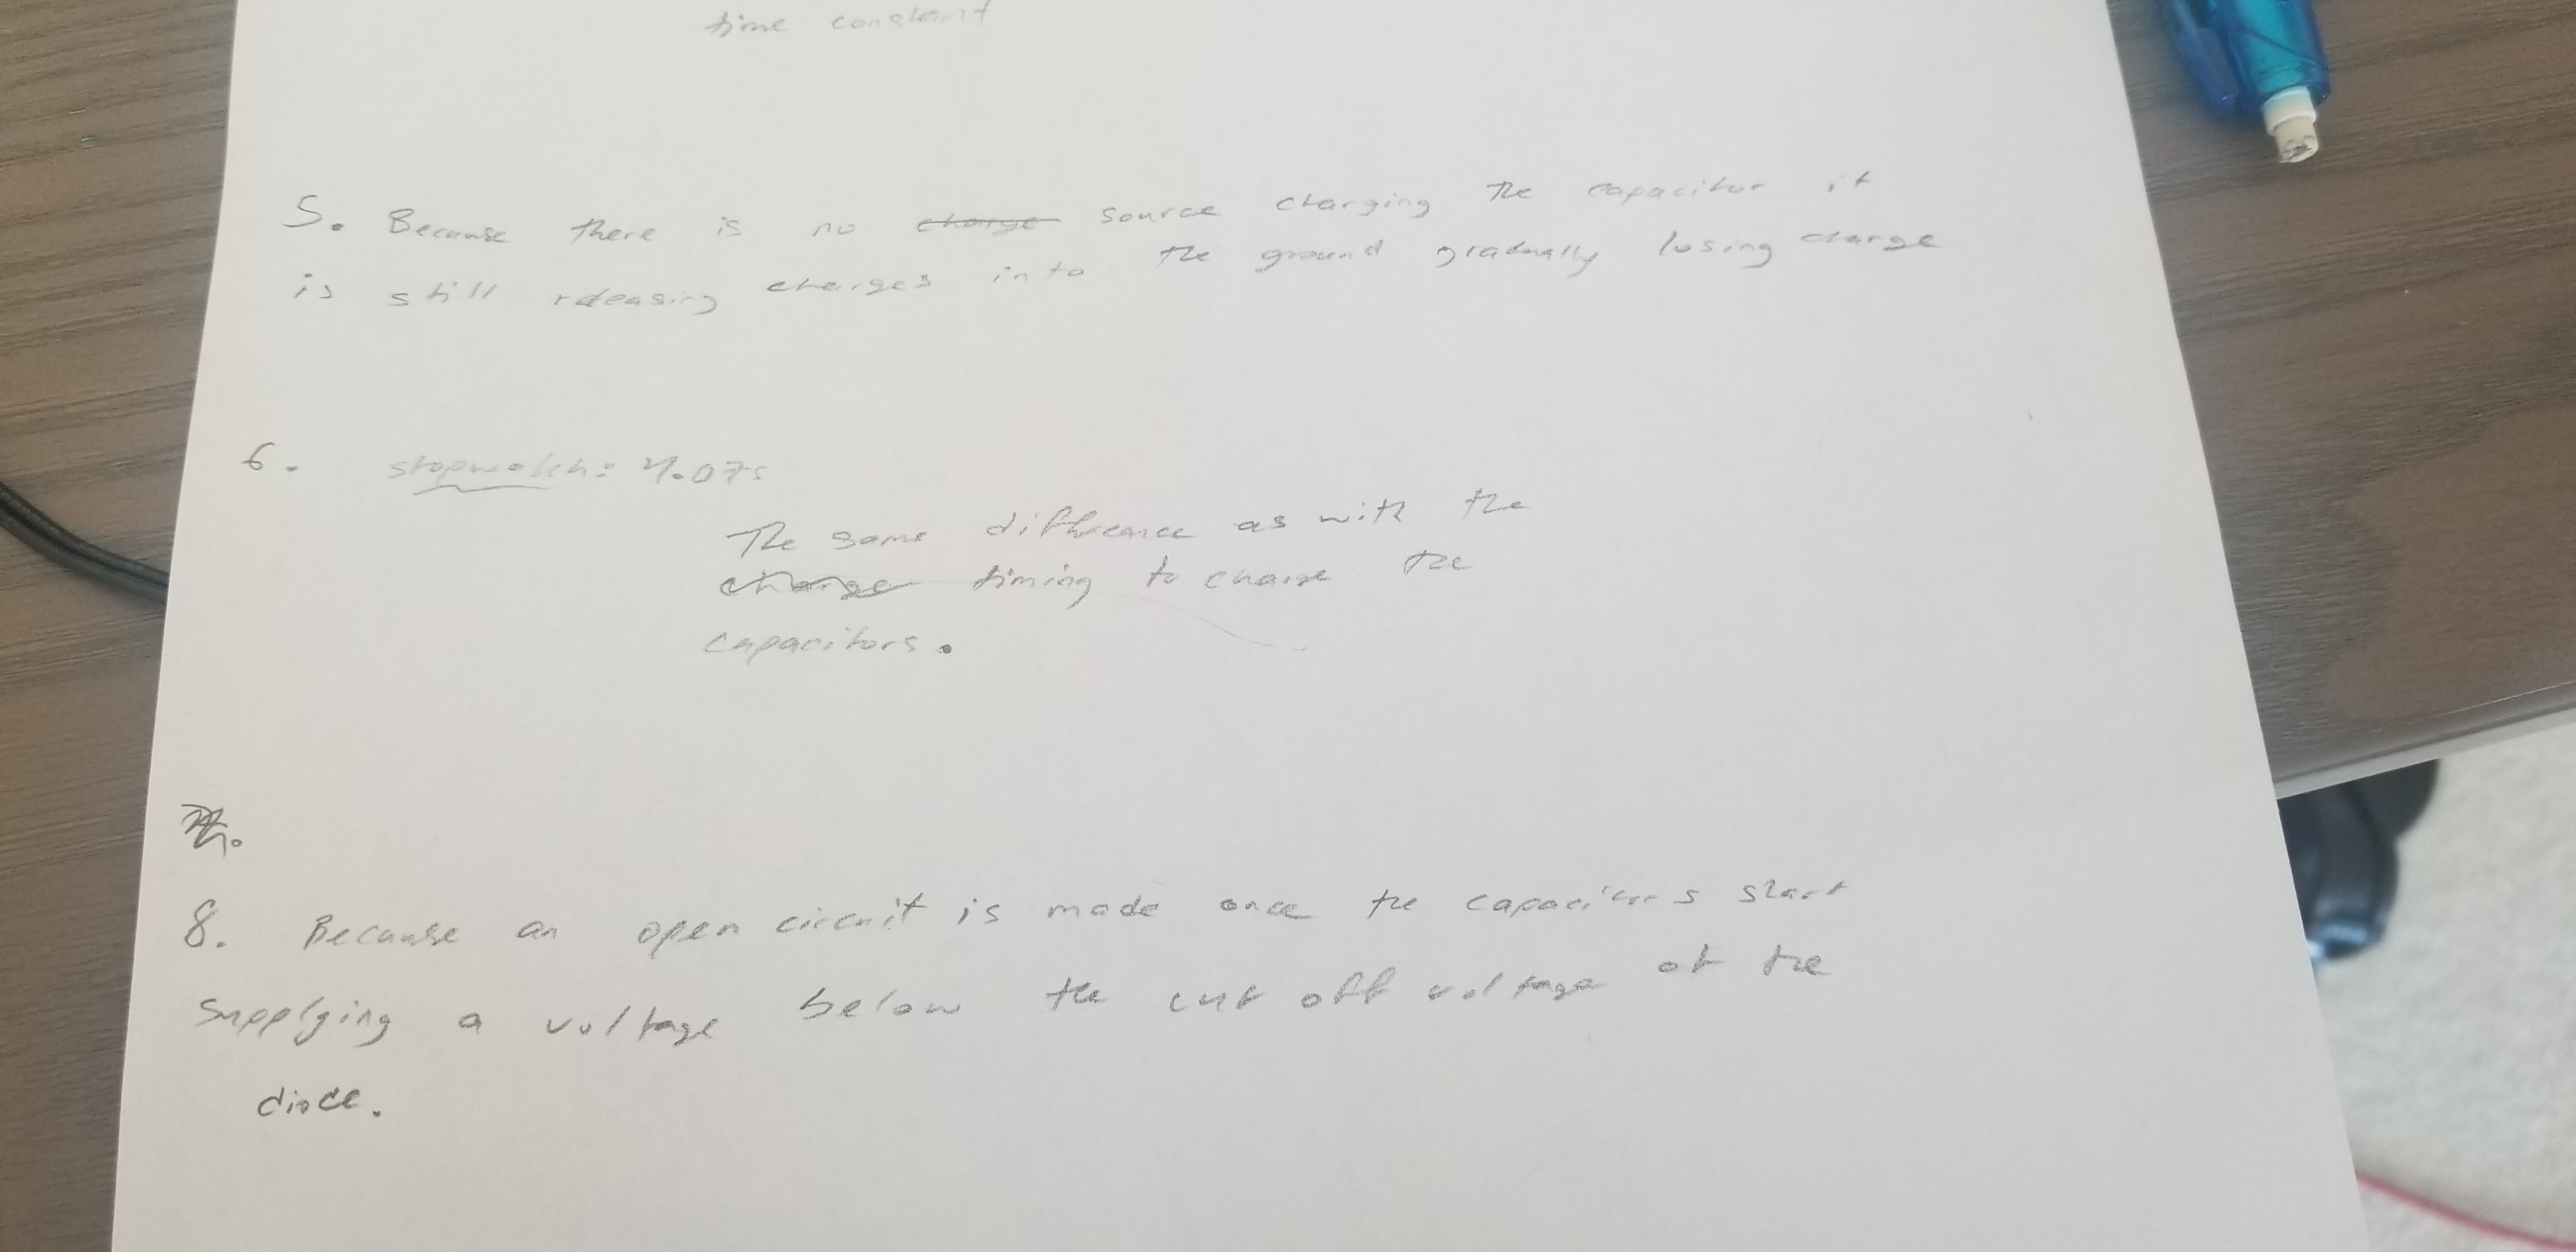 time constant
5. Because there is no charge source charging the capacitor it
is still releasing charges into the ground gradually losing charge
6. stopwatch:
The same diffrence as with the
charge timing to charge the
capacitors.
8. Because an open circuit is made once the capacitors start
supplying a voltage below the cut off voltage of the
diode.